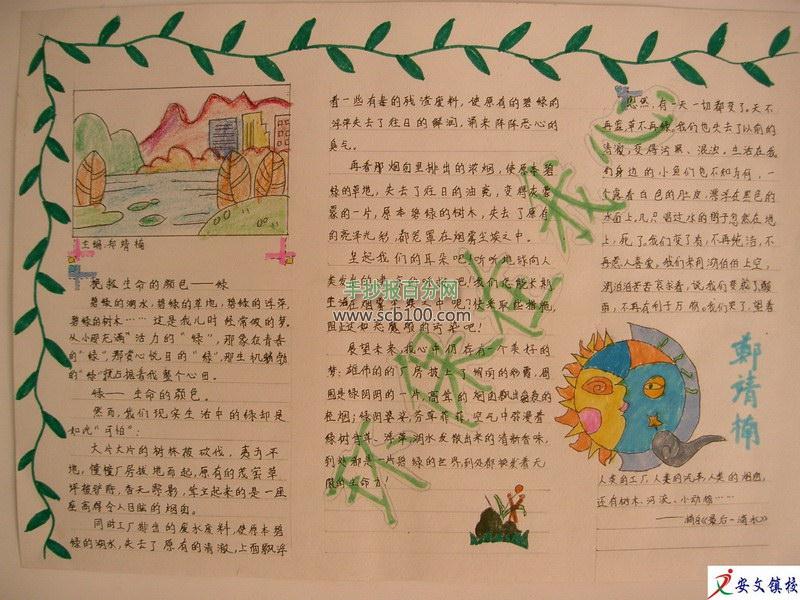 主编:郑靖楠
挽救生命的颜色——绿
碧绿的湖水,碧绿的草地,碧绿的浮萍,
碧绿的树木……这是我儿时经常做的梦。
从小那充满"活力的"绿",那象征青春
的"绿",那赏心悦目的"绿",那生机勃勃
的"绿"就占据着我整个心田。
绿——生命的颜色。
然而,我们现实生活中的绿却是
如此"可怕":
大片大片的树林被砍伐,
地,幢幢厂房拔地而起,原有的茂密草
坪被铲除,杳无踪影,耸立起来的是一座
座高得令人目眩的烟囱。
同时工厂排出的废水废料,使原本碧
绿的湖水,失去了原有的清澈,上面飘浮
看一些有毒的残渣废料,使原有的碧绿的
浮萍失去了往日的鲜润,弟来阵阵恶心的
臭气。
再看那烟囱里排出的浓烟,使原本碧
绿的草地,失去了往日的油亮,变得灰蒙
蒙的一片,原本碧绿的树木,失去了原有
的亮泽光彩,都笼罩在烟雾尘埃之中。
竖起我们的耳朵吧!听听地球向人
类发出的
生活在烟雾尘埃之中吧?快采取些措施,
阻止这如恶魔般的污染吧!
展望未来,我心中仍存有一个美好的
梦:雄伟的的厂房披上了绚丽的彩霞,周
围是绿阴阴的一片,高耸的烟囱飘出
轻烟;绿阴婆娑,芳草菲菲,空气中弥漫着
绿树青草、浮萍湖水发散出来的清新香味,
到处都是一片绿的世界,到处都焕发着无
限的生命力!
忽然,有一天一切都变了。天不
再蓝,草不再绿。我们也失去了以前的
清澈,变得污黑、混浊。生活在我
们身边的小鱼们也不知为何,一
个露着白色的肚皮,漂浮在黑色的
水面上,几只喝过水的鸭子忽然在地
上,死了。我们变了,不再纯洁,不
再惹人喜爱。我们来到湖伯伯上空,
湖泊泊苦苦哀求着,说我们要救了酸
雨,不再有利于万物。我们哭了,望着
人类的工厂,人类的汽车,人类的烟囱,
还有树木、河流、小动物……
——摘自《最后一滴水》
郑靖楠
环保在我心
手抄报百分网
www.scb100.com
安文镇校